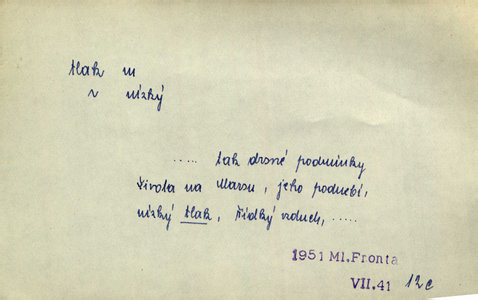 tlak m
v nízký
..... tak drsné podmínky
života na Marsu, jeho podnebí,
nízký tlak, řídký vzduch, .....
1951 Ml.Fronta
VII.41 12c